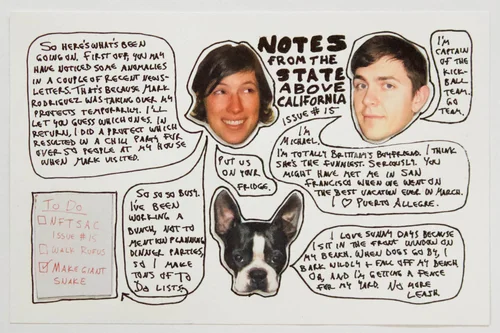 So here's what's been
going on. First off, you may
have noticed some anomalies
in a couple of recent news-
letters. That's because Mark
Rodriguez was taking over my
protests temporarily. I'll
let you guess which ones. In
return, I did a protest which
resulted in a chili party for
over 50 people at my house
when Mark visited.
NOTES
FROM THE
STATE
ABOVE
CALIFORNIA
ISSUE #15
I'm
captain
of the
kick-
ball
team.
Go
team.
I'm
Michael.
I'm totally Brittany's boyfriend. I think
she's the funniest. Seriously. You
might have met me in San
Francisco when we went on
the best vacation ever in March.
I ♡ Puerto Allegre.
Put us
on your
fridge.
So so so busy.
I've been
working a
bunch, not to
mention planning
dinner parties,
so I make
tons of to
do lists
To Do
NFTSAC
Issue #15
Walk Rufus
Make giant
snake
I love sunny days because
I sit in the front window on
my bench. When dogs go by, I
bark wildly + fall off my bench.
Oh, and I'm getting a fence
for my yard. No more
leash